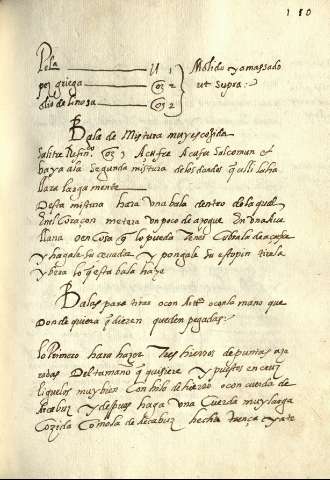 180
Pela — U 1
pez griega — Oz 2
olio de linosa — Oz 2
Molido y amassado
ut supra:
Bala de Mistura muy escosida
Salitre Refinº. Oz 3 Acufre
baya dia segunda mistura de los dardos q̃ alli lo ha
llara larga mente
Desta mistura hara una bala dentro de la quel
En el Coraçon metera un poco de azogue En una Ave
llana o en Cosa q̃ lo pueda Tener Cubrala de
y hagala su cevadas y pongale su estopin tirala
y vera lo q̃ esta bala haze
Balas para tirar o con Artᵃ o con la mano que
Donde quiera q̃ dieren queden pegadas:
Lo Primero hara hazer Tres hierros de puntas
Del tamaño q̃ quisiere y puestos en cruz
liguelos muy bien Con hilo de hierro o con cuerda de
Arcabuz y despues haga una Cuerda muy larga
Cozida Como la de Arcabuz hecha trença y ate